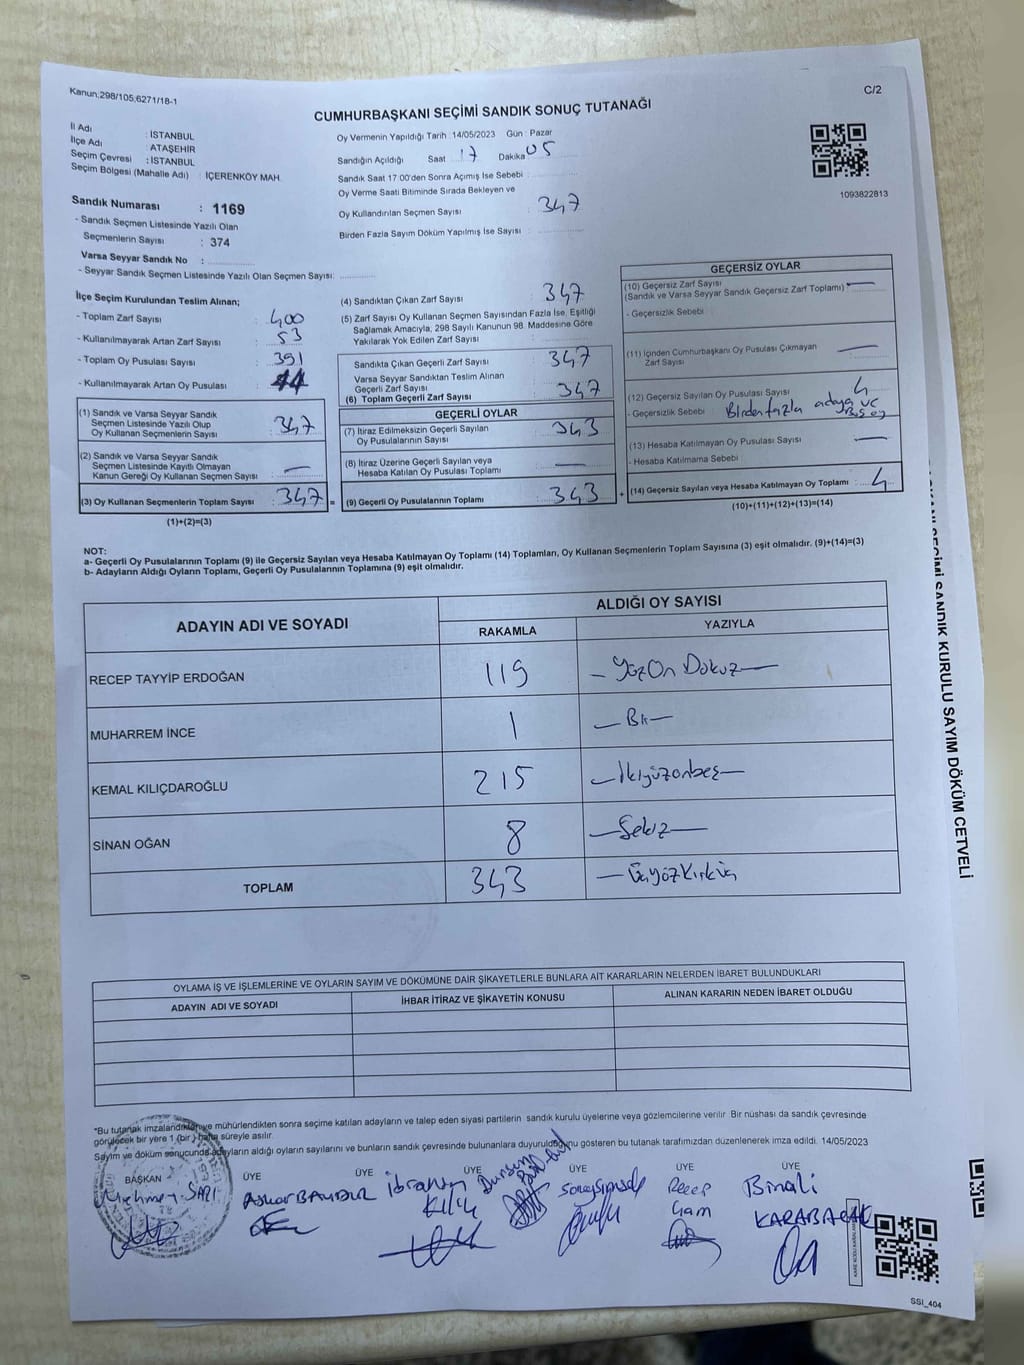 Kanun:298/105;6271/18-1
C/2
CUMHURBAŞKANI SEÇİMİ SANDIK SONUÇ TUTANAĞI
İl Adı : İSTANBUL
İlçe Adı : ATAŞEHİR
Seçim Çevresi : İSTANBUL
Seçim Bölgesi (Mahalle Adı) : İÇERENKÖY MAH.
Sandık Numarası : 1169
- Sandık Seçmen Listesinde Yazılı Olan
Seçmenlerin Sayısı : 374
Varsa Seyyar Sandık No :
- Seyyar Sandık Seçmen Listesinde Yazılı Olan Seçmen Sayısı:
Oy Vermenin Yapıldığı Tarih :14/05/2023 Gün : Pazar
Sandığın Açıldığı Saat 17 Dakika 05
Sandık Saat 17:00'den Sonra Açımış İse Sebebi :
Oy Verme Saati Bitiminde Sırada Bekleyen ve
Oy Kullandırılan Seçmen Sayısı : 347
Birden Fazla Sayım Döküm Yapılmış İse Sayısı :
1093822813
İlçe Seçim Kurulundan Teslim Alınan;
- Toplam Zarf Sayısı : 400
- Kullanılmayarak Artan Zarf Sayısı : 53
- Toplam Oy Pusulası Sayısı : 391
- Kullanılmayarak Artan Oy Pusulası : 44
(1) Sandık ve Varsa Seyyar Sandık
Seçmen Listesinde Yazılı Olup
Oy Kullanan Seçmenlerin Sayısı : 347
(2) Sandık ve Varsa Seyyar Sandık
Seçmen Listesinde Kayıtlı Olmayan
Kanun Gereği Oy Kullanan Seçmen Sayısı : —
(3) Oy Kullanan Seçmenlerin Toplam Sayısı : 347 =
(1)+(2)=(3)
(4) Sandıktan Çıkan Zarf Sayısı : 347
(5) Zarf Sayısı Oy Kullanan Seçmen Sayısından Fazla İse, Eşitliği
Sağlamak Amacıyla, 298 Sayılı Kanunun 98. Maddesine Göre
Yakılarak Yok Edilen Zarf Sayısı :
Sandıkta Çıkan Geçerli Zarf Sayısı : 347
Varsa Seyyar Sandıktan Teslim Alınan
Geçerli Zarf Sayısı
(6) Toplam Geçerli Zarf Sayısı : 347
GEÇERLİ OYLAR
(7) İtiraz Edilmeksizin Geçerli Sayılan
Oy Pusulalarının Sayısı : 343
(8) İtiraz Üzerine Geçerli Sayılan veya
Hesaba Katılan Oy Pusulası Toplamı : —
(9) Geçerli Oy Pusulalarının Toplamı : 343 +
GEÇERSİZ OYLAR
(10) Geçersiz Zarf Sayısı
(Sandık ve Varsa Seyyar Sandık Geçersiz Zarf Toplamı) : —
- Geçersizlik Sebebi :
(11) İçinden Cumhurbaşkanı Oy Pusulası Çıkmayan
Zarf Sayısı : —
(12) Geçersiz Sayılan Oy Pusulası Sayısı : 4
- Geçersizlik Sebebi Birden fazla adaya ve
Boş oy
(13) Hesaba Katılmayan Oy Pusulası Sayısı : —
- Hesaba Katılmama Sebebi
(14) Geçersiz Sayılan veya Hesaba Katılmayan Oy Toplamı : 4
(10)+(11)+(12)+(13)=(14)
NOT:
a- Geçerli Oy Pusulalarının Toplamı (9) ile Geçersiz Sayılan veya Hesaba Katılmayan Oy Toplamı (14) Toplamları, Oy Kullanan Seçmenlerin Toplam Sayısına (3) eşit olmalıdır. (9)+(14)=(3)
b- Adayların Aldığı Oyların Toplamı, Geçerli Oy Pusulalarının Toplamına (9) eşit olmalıdır.
ADAYIN ADI VE SOYADI
ALDIĞI OY SAYISI
RAKAMLA YAZIYLA
RECEP TAYYİP ERDOĞAN 119 — YüzOn Dokuz —
MUHARREM İNCE 1 — Bir —
KEMAL KILIÇDAROĞLU 215 — İkiyüzonbeş —
SİNAN OĞAN 8 — Sekiz —
TOPLAM 343 — ÜçyüzKırküç
OYLAMA İŞ VE İŞLEMLERİNE VE OYLARIN SAYIM VE DÖKÜMÜNE DAİR ŞİKAYETLERLE BUNLARA AİT KARARLARIN NELERDEN İBARET BULUNDUKLARI
ADAYIN ADI VE SOYADI İHBAR İTİRAZ VE ŞİKAYETİN KONUSU ALINAN KARARIN NEDEN İBARET OLDUĞU
*Bu tutanak imzalandıktan ve mühürlendikten sonra seçime katılan adayların ve talep eden siyasi partilerin sandık kurulu üyelerine veya gözlemcilerine verilir. Bir nüshası da sandık çevresinde
görülecek bir yere 1 (bir) hafta süreyle asılır.
Sayım ve döküm sonucunda adayların aldığı oyların sayılarını ve bunların sandık çevresinde bulunanlara duyurulduğunu gösteren bu tutanak tarafımızdan düzenlenerek imza edildi. 14/05/2023
BAŞKAN ÜYE ÜYE ÜYE ÜYE ÜYE ÜYE
Mehmet SARI
İbrahim
KILIÇ
Dursun
Recep
Binali
KARABACAK
SSI_404
SANDIK KURULU SAYIM DÖKÜM CETVELİ